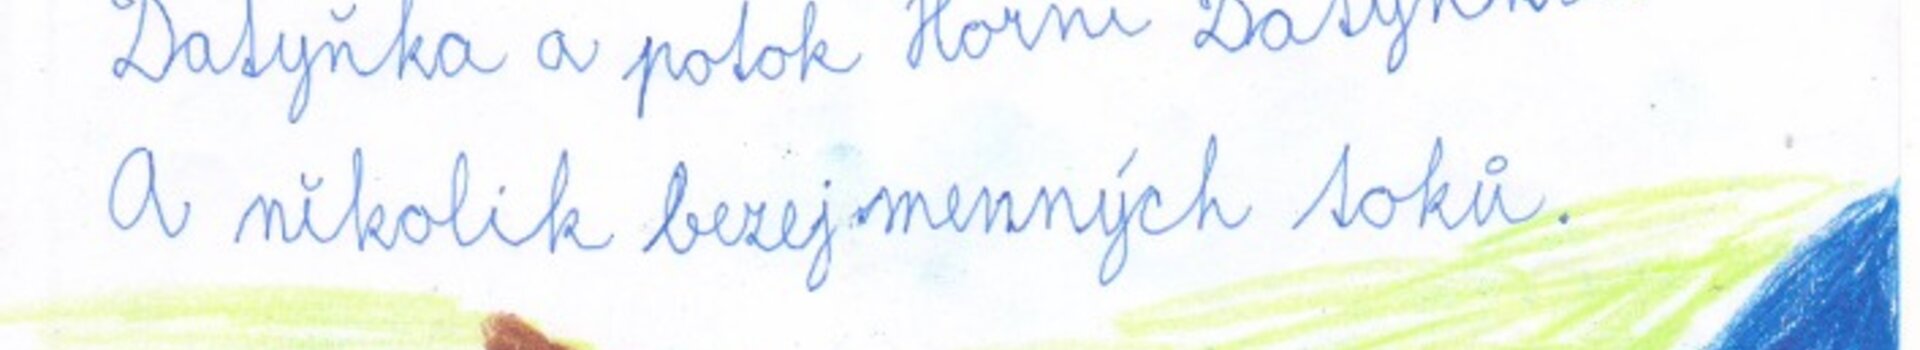 Datyňka a potok Horní
A několik bezejmenných toků.